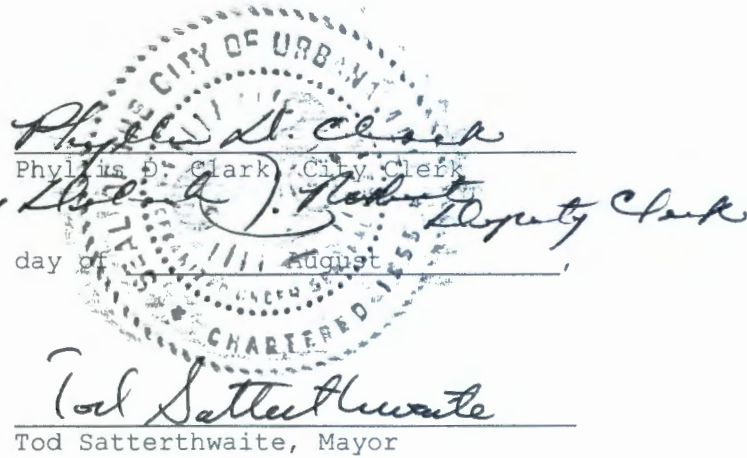 CITY OF URBANA
Phyllis D. Clark
Phyllis D. Clark, City Clerk
Deputy Clerk
day of August,
SEAL
CHARTERED 1855
Tod Satterthwaite
Tod Satterthwaite, Mayor